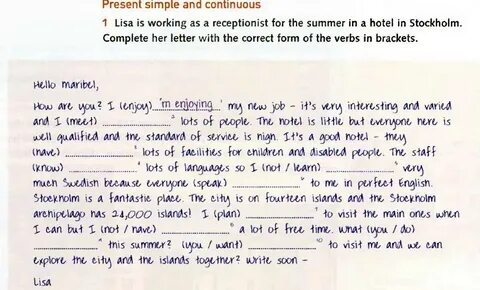 Present simple and continuous
1 Lisa is working as a receptionist for the summer in a hotel in Stockholm.
Complete her letter with the correct form of the verbs in brackets.
Hello maribel,
How are you? I (enjoy) 'm enjoying ¹ my new job – it's very interesting and varied
and I (meet) ............ ² lots of people. The hotel is little but everyone here is
well qualified and the standard of service is high. It's a good hotel – they
(have) ............ ³ lots of facilities for children and disabled people. The staff
(know) ............ ⁴ lots of languages so I (not / learn) ............ ⁵ very
much Swedish because everyone (speak) ............ ⁶ to me in perfect English.
Stockholm is a fantastic place. The city is on fourteen islands and the Stockholm
archipelago has 24,000 islands! I (plan) ............ ⁷ to visit the main ones when
I can but I (not / have) ............ ⁸ a lot of free time. What (you / do)
............ ⁹ this summer? (you / want) ............ ¹⁰ to visit me and we can
explore the city and the islands together? Write soon –
Lisa